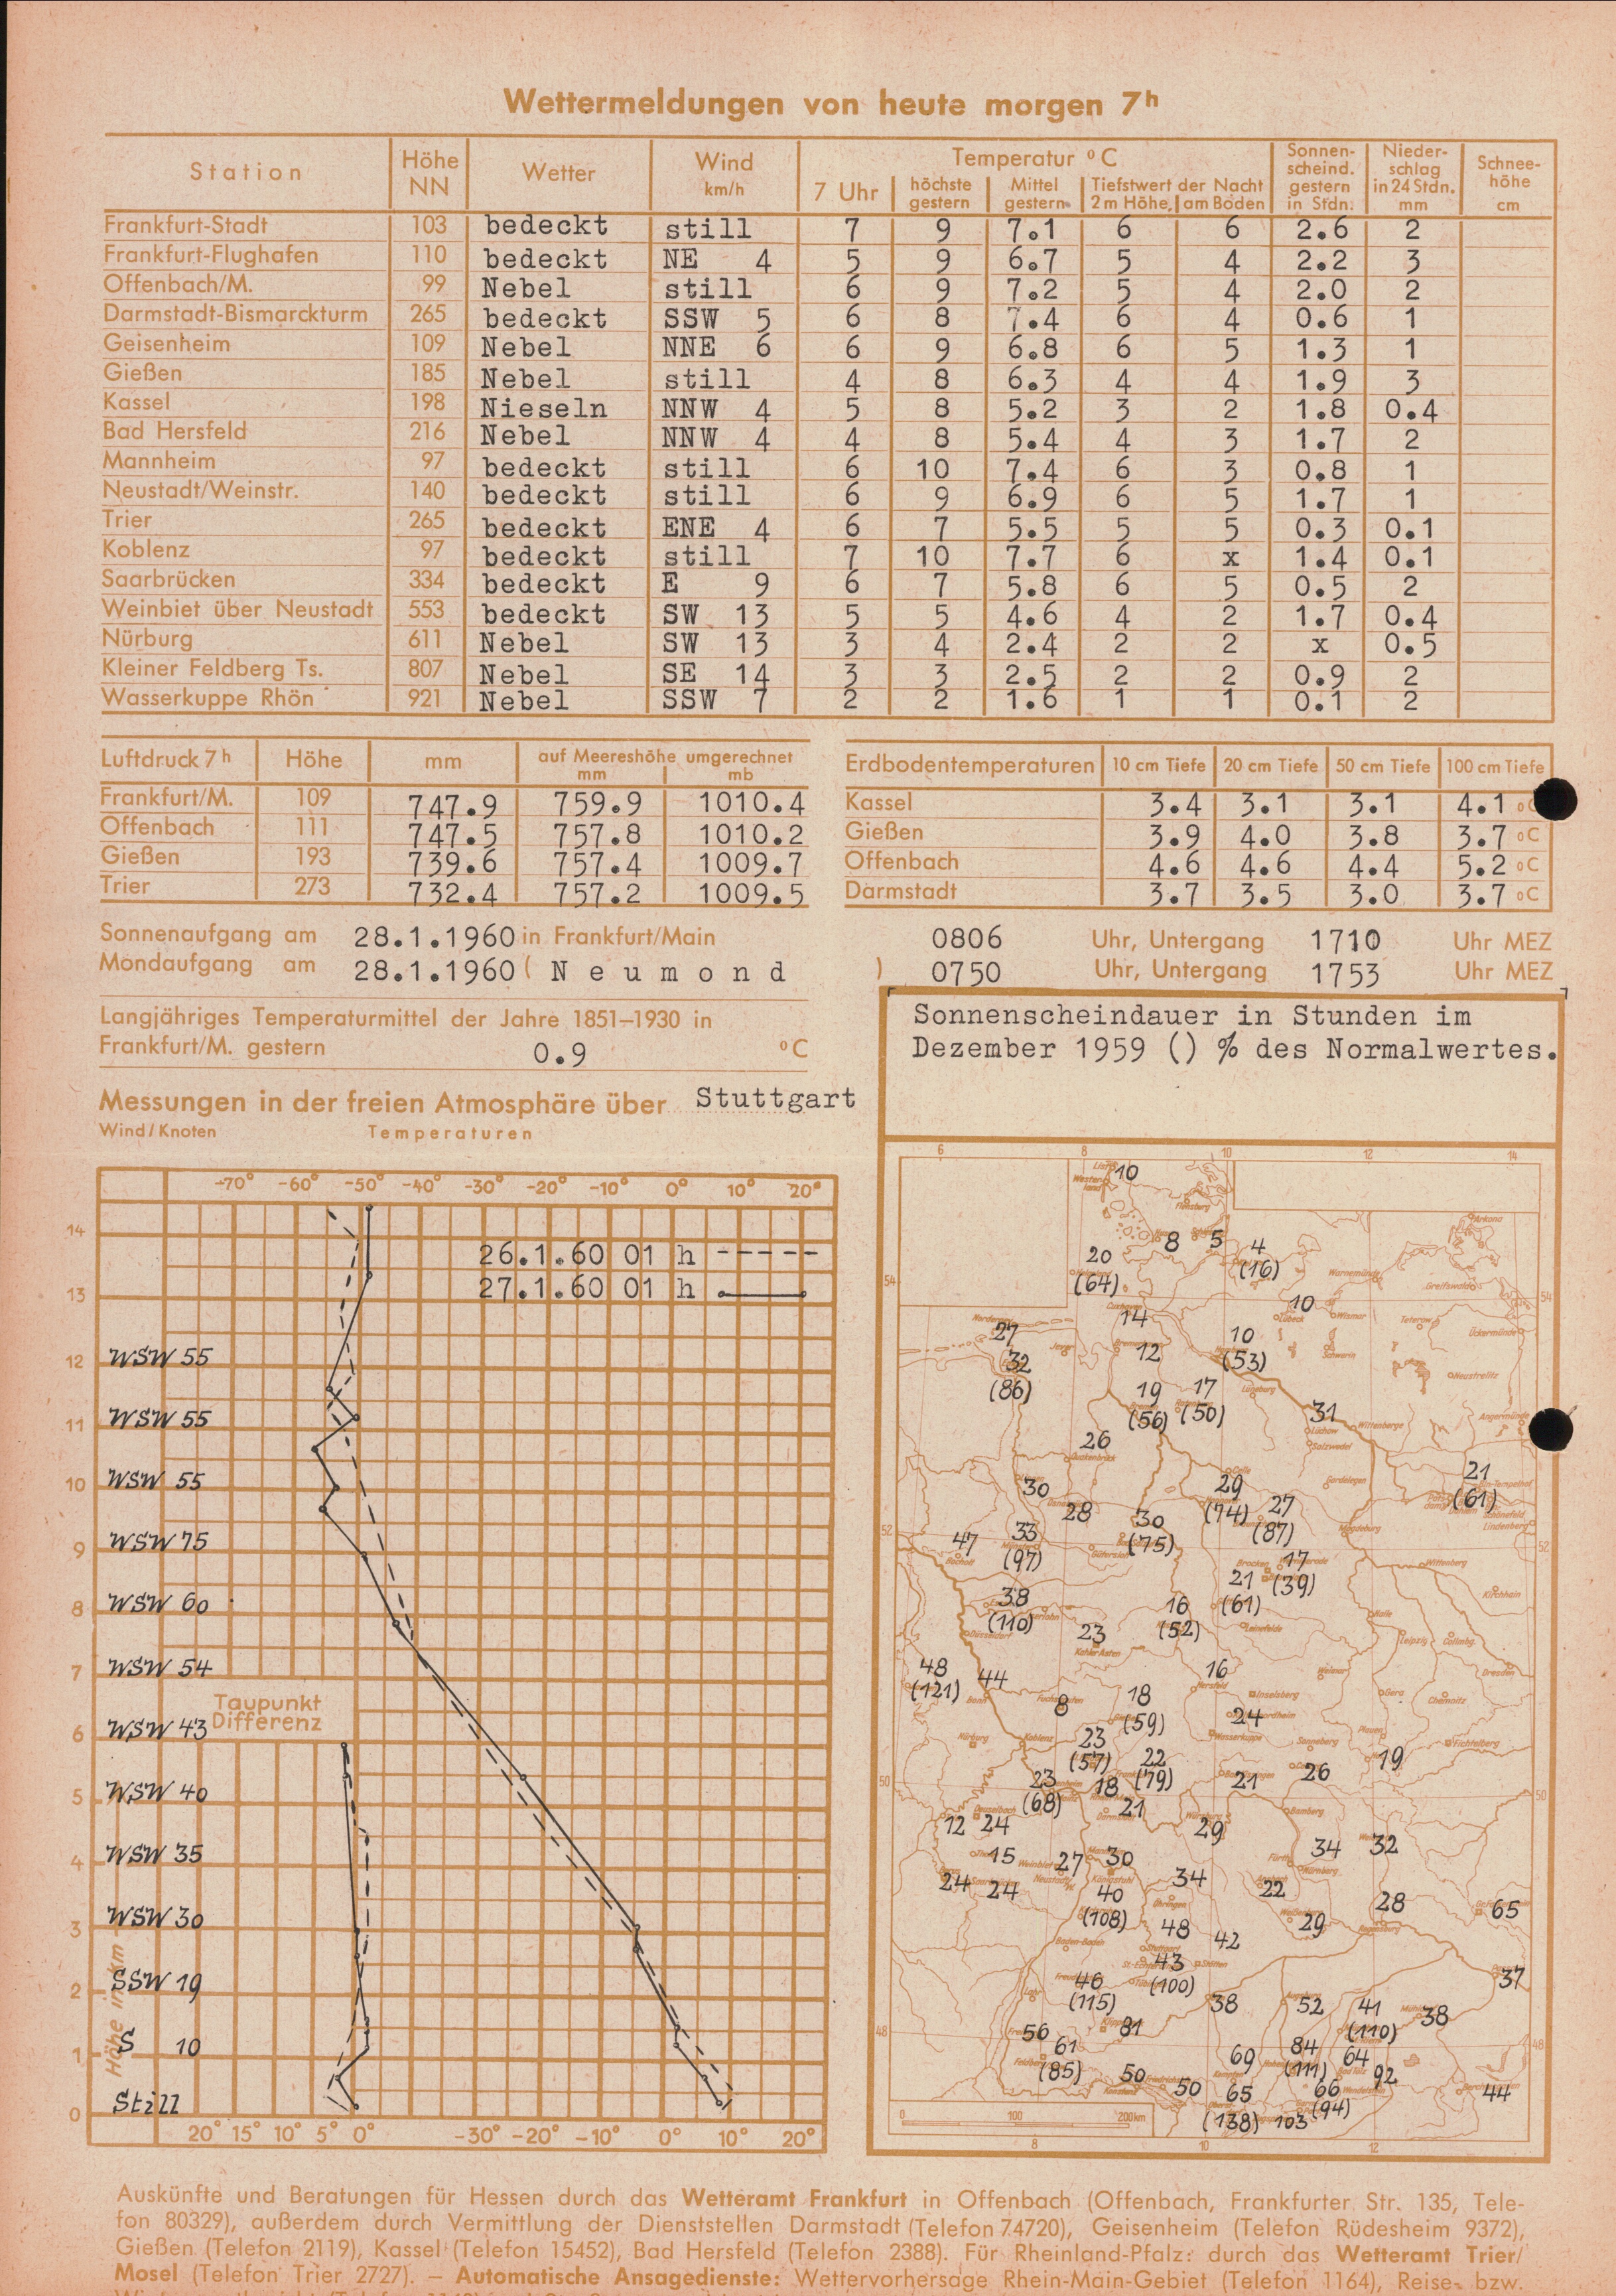 Wettermeldungen von heute morgen 7h
Station Höhe NN Wetter Wind km/h Temperatur °C Sonnen-scheind. gestern in Stdn. Nieder-schlag in 24 Stdn. mm Schnee-höhe cm
7 Uhr höchste gestern Mittel gestern Tiefstwert der Nacht 2 m Höhe, am Boden
Frankfurt-Stadt 103 bedeckt still 7 9 7.1 6 6 2.6 2
Frankfurt-Flughafen 110 bedeckt NE 4 5 9 6.7 5 4 2.2 3
Offenbach/M. 99 Nebel still 6 9 7.2 5 4 2.0 2
Darmstadt-Bismarckturm 265 bedeckt SSW 5 6 8 7.4 6 4 0.6 1
Geisenheim 109 Nebel NNE 6 6 9 6.8 6 5 1.3 1
Gießen 185 Nebel still 4 8 6.3 4 4 1.9 3
Kassel 198 Nieseln NNW 4 5 8 5.2 3 2 1.8 0.4
Bad Hersfeld 216 Nebel NNW 4 4 8 5.4 4 3 1.7 2
Mannheim 97 bedeckt still 6 10 7.4 6 3 0.8 1
Neustadt/Weinstr. 140 bedeckt still 6 9 6.9 6 5 1.7 1
Trier 265 bedeckt ENE 4 6 7 5.5 5 5 0.3 0.1
Koblenz 97 bedeckt still 7 10 7.7 6 x 1.4 0.1
Saarbrücken 334 bedeckt E 9 6 7 5.8 6 5 0.5 2
Weinbiet über Neustadt 553 bedeckt SW 13 5 5 4.6 4 2 1.7 0.4
Nürburg 611 Nebel SW 13 3 4 2.4 2 2 x 0.5
Kleiner Feldberg Ts. 807 Nebel SE 14 3 3 2.5 2 2 0.9 2
Wasserkuppe Rhön 921 Nebel SSW 7 2 2 1.6 1 1 0.1 2
Luftdruck 7h Höhe mm auf Meereshöhe umgerechnet mm mb
Frankfurt/M. 109 747.9 759.9 1010.4
Offenbach 111 747.5 757.8 1010.2
Gießen 193 739.6 757.4 1009.7
Trier 273 732.4 757.2 1009.5
Erdbodentemperaturen 10 cm Tiefe 20 cm Tiefe 50 cm Tiefe 100 cm Tiefe
Kassel 3.4 3.1 3.1 4.1 °C
Gießen 3.9 4.0 3.8 3.7 °C
Offenbach 4.6 4.6 4.4 5.2 °C
Darmstadt 3.7 3.5 3.0 3.7 °C
Sonnenaufgang am 28.1.1960 in Frankfurt/Main 0806 Uhr, Untergang 1710 Uhr MEZ
Mondaufgang am 28.1.1960 ( Neumond ) 0750 Uhr, Untergang 1753 Uhr MEZ
Langjähriges Temperaturmittel der Jahre 1851–1930 in
Frankfurt/M. gestern 0.9 °C
Messungen in der freien Atmosphäre über Stuttgart
Wind/Knoten Temperaturen
-70° -60° -50° -40° -30° -20° -10° 0° 10° 20°
14
26.1.60 01 h
27.1.60 01 h
13
12 WSW 55
11 WSW 55
10 WSW 55
9 WSW 75
8 WSW 60
7 WSW 54
Taupunkt
Differenz
6 WSW 43
5 WSW 40
4 WSW 35
3 WSW 30
2 SSW 19
1 S 10
0 Still
Höhe in km
20° 15° 10° 5° 0° -30° -20° -10° 0° 10° 20°
Sonnenscheindauer in Stunden im
Dezember 1959 () % des Normalwertes.
6 8 10 12 14
10
8 5 4
20 (16)
(64)
54 54
10
14
27 10
12 (53)
32
(86)
19 17
(56) (50)
31
26
21
(61)
30 29
28 (74) 27
30 (87)
(75)
33
(97)
47
52 52
17
21 (39)
(61)
38
(110)
16
(52)
23
48
(121)
44
16
8 18
(59)
24
23
(57)
22
(79)
19
23
(68)
18
21
21 26
50 50
12 24
29
34 32
15 27 30
24 24
34
22
40
(108)
28 65
29
48 42
43
(100)
46
(115)
37
38 52 41
(110)
38
56 81
48 48
61
(85)
69 84
(111)
64
92
50 50 65
(138)
66
(94)
103
44
0 100 200km
8 10 12
Auskünfte und Beratungen für Hessen durch das Wetteramt Frankfurt in Offenbach (Offenbach, Frankfurter Str. 135, Tele-
fon 80329), außerdem durch Vermittlung der Dienststellen Darmstadt (Telefon 74720), Geisenheim (Telefon Rüdesheim 9372),
Gießen (Telefon 2119), Kassel (Telefon 15452), Bad Hersfeld (Telefon 2388). Für Rheinland-Pfalz: durch das Wetteramt Trier/
Mosel (Telefon Trier 2727). – Automatische Ansagedienste: Wettervorhersage Rhein-Main-Gebiet (Telefon 1164), Reise- bzw.